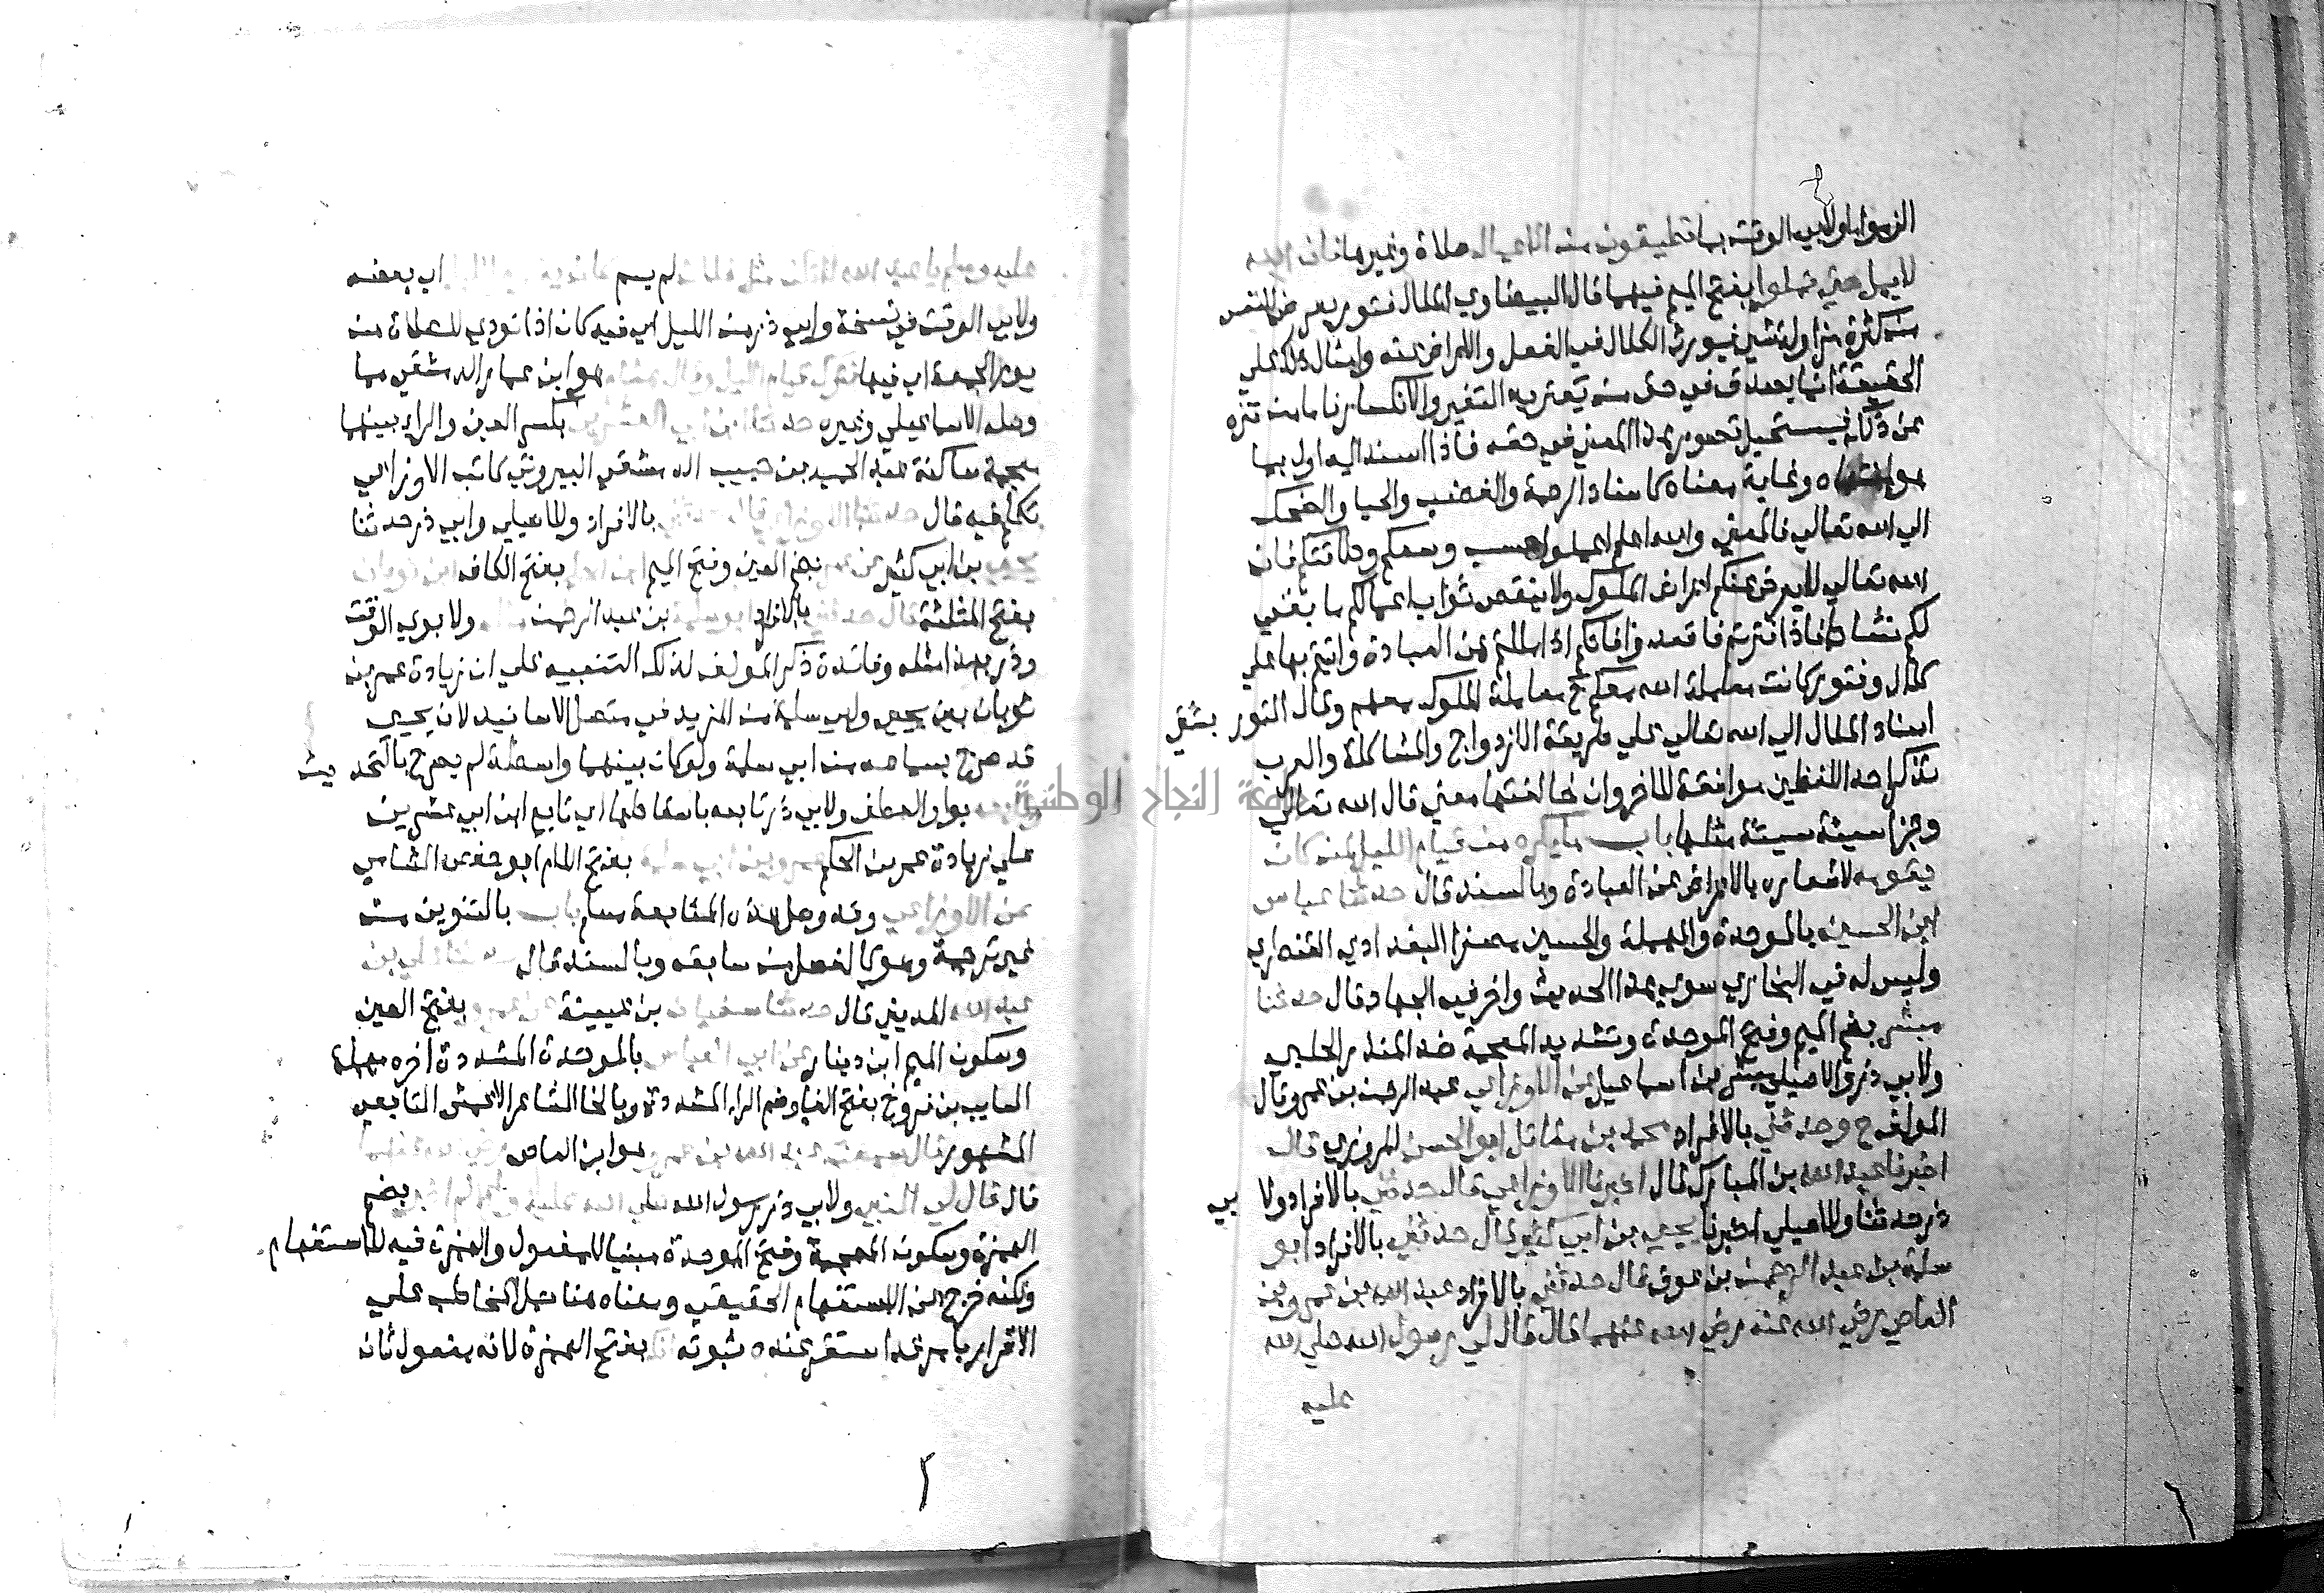 الزموا ولابي الوقت بما تطيقون من الاعمال صلاة وغيرها فان الله
لا يمل حتى تملوا بفتح الميم فيهما قال البيضاوي الملال فتور يعرض للنفس
من كثرة مزاولة شي فيورث الكلال في الفعل والاعراض عنه وامثال ذلك علي
الحقيقة انما يصدق في حق من يعتريه التغير والانكسار فاما من تنزه
عن ذلك فيستحيل تصور هذا المعني في حقه فاذا اسند اليه اول بما
هو منتهاه وغاية معناه كاسناد الرحمة والغضب والحيا والضحك
الي الله تعالي فالمعني والله اعلم اعملوا حسب وسعكم وطاقتكم فان
الله تعالي لا يعرض عنكم اعراض الملول ولا ينقص ثواب اعمالكم ما بقي
لكم نشاط فاذا فترتم فاقعدوا فانكم اذا مللتم عن العبادة واتيتم بها علي
كلال وفتور كانت معاملة الله معكم ح معاملة الملوك معهم وقال التور بشتي
اسناد الملال الي الله تعالي علي طريقة الازدواج والمشاكلة والعرب
تذكر احد اللفظين موافقة للاخر وان خالفتها معني قال الله تعالي
وجزا سيئة سيئة مثلها باب ما يكره من قيام الليل لمن كان
يقومه لاشعاره بالاعراض عن العبادة وبالسند قال حدثنا عباس
ابن الحسين بالموحدة والمهملة والحسين مصغرا البغدادي القنطري
وليس له في البخاري سوي هذا الحديث واخر في الجهاد قال حدثنا
مبشر بضم الميم وفتح الموحدة وتشديد المعجمة ضد المنذر الحلبي
ولابي ذر والاصيلي مبشر بن اسماعيل عن الاوزاعي عبد الرحمن بن عمرو قال
المولف ح وحدثني بالافراد محمد بن مقاتل ابو الحسن المروزي قال
اخبرنا عبد الله بن المبارك قال اخبرنا الاوزاعي قال حدثني بالافراد ولا بي
ذر حدثنا وللاصيلي اخبرنا يحيي بن ابي كثير قال حدثني بالافراد ابو
سلمة بن عبد الرحمن بن عوف قال حدثني بالافراد عبد الله بن عمرو بن
العاصي رضي الله عنه رضي الله عنهما قال قال لي رسول الله صلي الله
عليه
عليه وسلم يا عبد الله لا تكن مثل فلان لم يسم اي بعضه
ولابي الوقت في نسخة وابي ذر من الليل اي فيه كاذا نودي للصلاة من
يوم الجمعة اي فيها فترك قيام الليل وقال هشام هو ابن عمار الدمشقي مما
وصله الاسماعيلي وغيره حدثنا ابن ابي العشرين بكسر العين والراء بينهما
معجمة ساكنة عبد الحميد بن حبيب الدمشقي البيروتي كاتب الاوزاعي
تكلم فيه قال حدثنا الاوزاعي قال حدثني بالافراد وللاصيلي وابي ذر حدثنا
يحيي بن ابي كثير عن عمر بضم العين وفتح الميم ابن الحكم بفتح الكاف ابن ثوبان
بفتح المثلثة قال حدثني بالافراد ابو سلمة بن عبد الرحمن مثله ولابوي الوقت
وذر بهذا مثله وفائدة ذكر المولف لذلك التنبيه علي ان زيادة عمر بن
ثوبان بين يحيي وابي سلمة من المزيد في متصل الاسانيد لان يحيي
قد صرح بسماعه من ابي سلمة ولو كان بينهما واسطة لم يصرح بالتحديث
وتابعه بواو العطف ولابي ذر تابعه باسقاطها اي تابع ابن ابي عشرين
علي زيادة عمر بن الحكم عمرو بن ابي سلمة بفتح اللام ابو حفص الشامي
عن الاوزاعي وقد وصل هذه المتابعة مسلم باب بالتنوين من
غير ترجمة وهو كالفصل من سابقه وبالسند قال حدثنا علي بن
عبد الله المديني قال حدثنا سفيان بن عيينة عن عمرو بفتح العين
وسكون الميم ابن دينار عن ابي العباس بالموحدة المشددة اخره مهملة
السايب بن فروخ بفتح الفا وضم الراء المشددة وبالخا الشاعر الاعمش التابعي
المشهور قال سمعت عبد الله بن عمرو هو ابن العاص رضي الله عنهما
قال قال لي النبي ولابي ذر رسول الله صلي الله عليه وسلم الم اخبر بضم
الهمزة وسكون المعجمة وفتح الموحدة مبنيا للمفعول والهمزة فيه للاستفهام
ولكنه خرج عن الاستفهام الحقيقي ومعناه هنا حمل المخاطب علي
الاقرار بامر قد استقر عنده ثبوته انك بفتح الهمزة لانه مفعول ثان
جامعة النجاح الوطنية